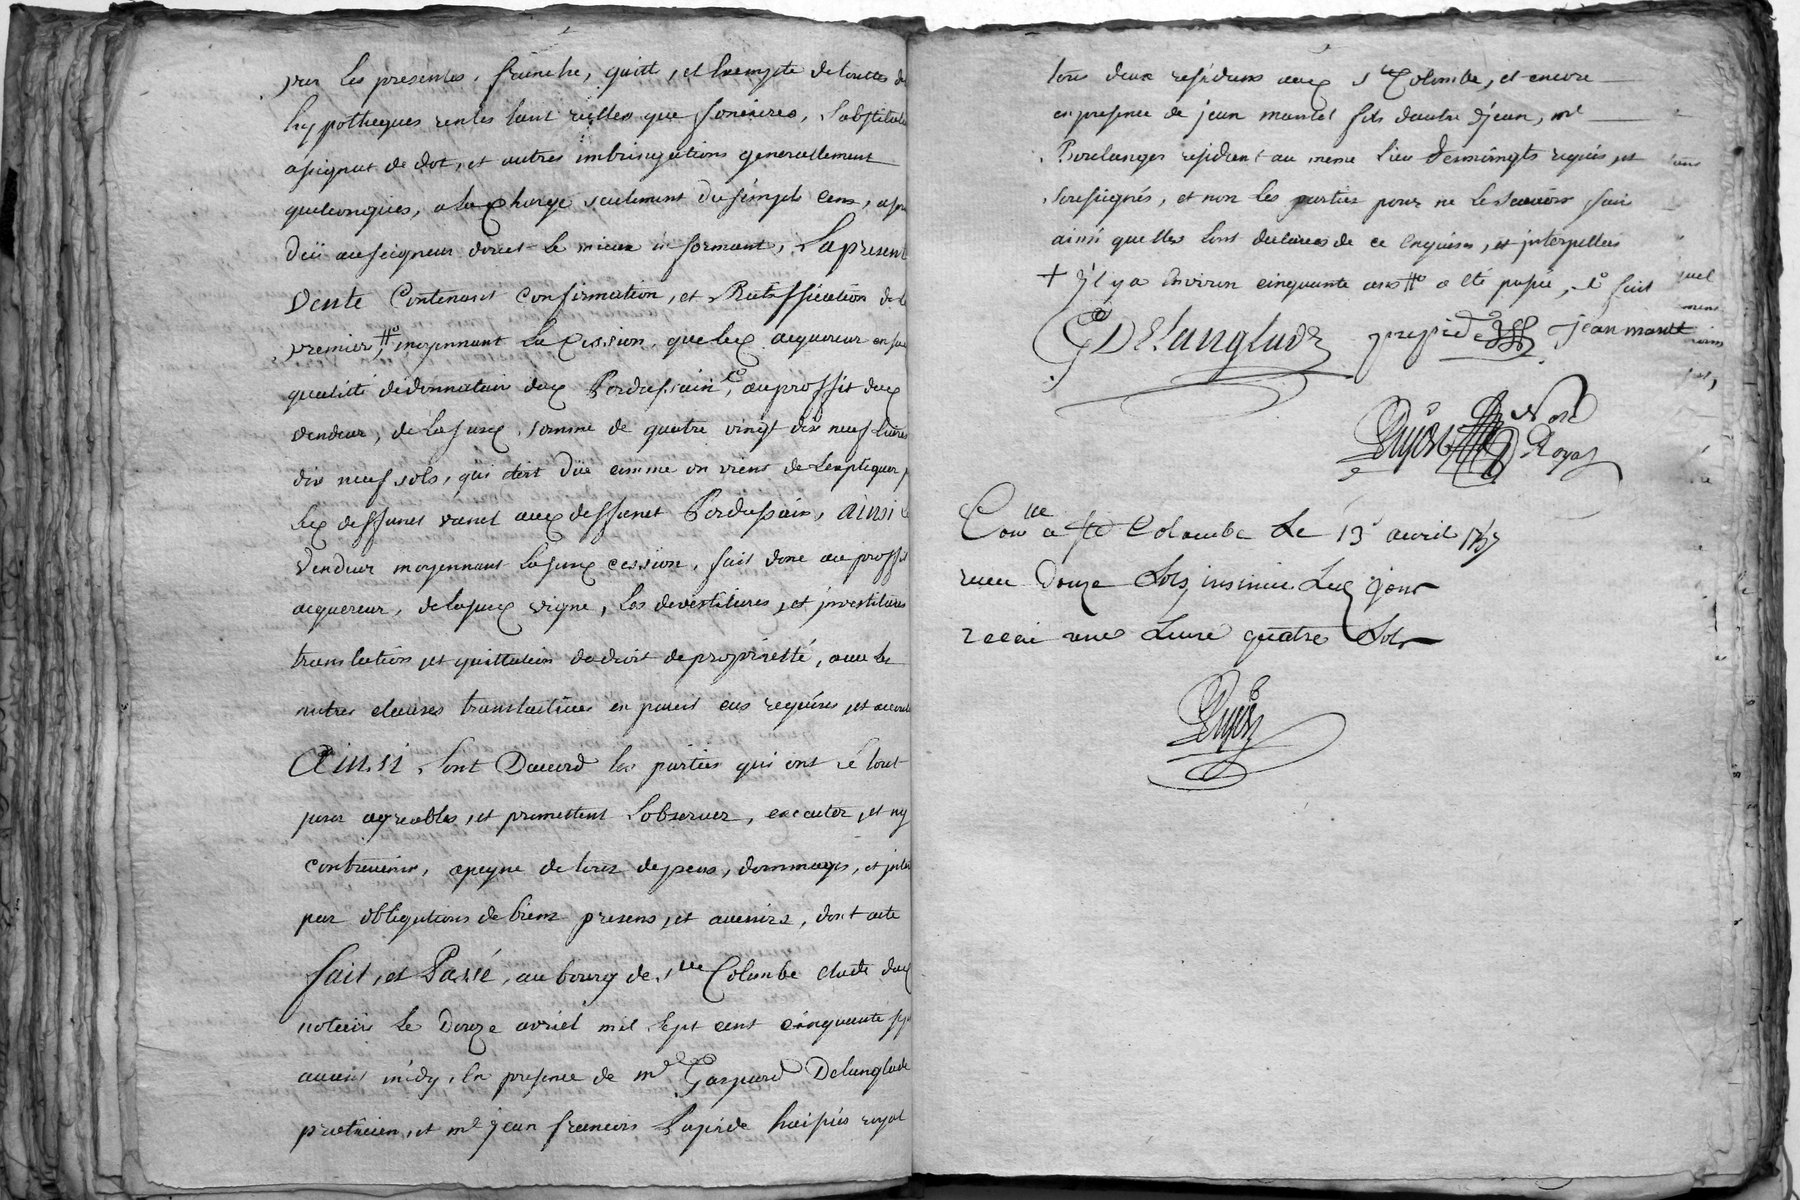 par les presentes, franche, quitte, et Exempte de touttes de
hypotheques rentes tant reelles que foncieres, substitu
assignat de dot, et autres imbringations generallement
quelconques, a la charge seulement du simple cens, a p
dû au seigneur direct le mieux informant, La present
Vente Contenant Confirmation, et Ratiffication de l
premier # moyennant La Cession, que led. acquereur en sa
qualitté de donnataire dud. Pordassain, au proffit dud.
vendeur, de la susd. somme de quatre vingt dix neuf livres
dix neuf sols, qui etoit düe comme on viens de L'expliquer p
led. deffunct aud. deffunct Pordassain, ainsi Le
Vendeur moyennant la susd. cession, fait donc au proffit
acquereur, de la susd. vigne, Les devestitures, et investitures
translation, et quittation de droit de proprietté, avec les
autres clauses translatives en pareil cas requises, et accou
Ainsi sont D'accord les parties qui ont le tout
pour agreables, et promettent L'observer, executer, et ny
contrevenir, a peyne de tous depens, dommages, et inte
par obligations de biens presens, et avenirs, dont acte
fait, et Passé, au bourg de Ste Colombe etude dud.
notaire Le Douze avril mil sept cent cinquante sep
avant midy, En presence de me Gaspard Delanglade
praticien, et me jean francois Lapride huissier royal
tous deux residans aud. Ste Colombe, et encore
en presence de jean mantel fils d'autre jean, me
Boulanger resident au meme lieu temoings requis, et
soussignés, et non les parties pour ne le scavoir faire
ainsi quelles sont declarées de ce Enquises, et interpellées
+ il y a environ cinquante ans # a été passé, fait
G Delanglade jean mantel
Guyon Not
Royal
Conlle a Ste Colombe Le 13 avril 1757
recu Douze Sols, insinué Led jour
recu une Livre quatre Sols
Guyon